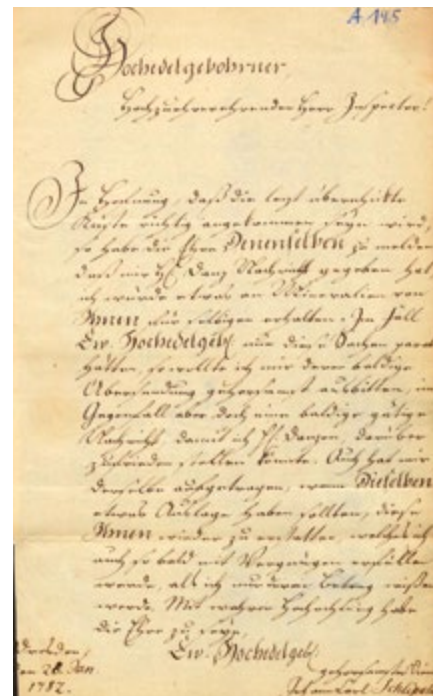 A 145
Hochedelgebohrner,
Hochzuehrenderender Herr Inspector!
In Hoffnung, daß die lezt überschickte
Kiste richtig angekommen seyn wird,
so habe die Ehre Denenselben zu melden
daß mir H. Danz Nachricht gegeben hat,
ich würde etwas an Mineralien von
Ihnen für selbigen erhalten. Im Fall
Ew. Hochedelgeb. nun diese Sachen parat
hätten, so wollte ich mir deren baldige
Übersendung gehorsamst ausbitten, im
Gegenfall aber doch eine baldige gütige
Nachricht, damit ich H. Danzen, darüber
zufrieden stellen könnte. Auch hat mir
derselbe aufgetragen, wenn Dieselben
etwas Auslage haben sollten, diese
Ihnen wieder zu erstatten, welches ich
auch so bald mit Vergnügen erfüllen
werde, als ich nur den Betrag wißen
werde. Mit wahrer Hochachtung habe
die Ehre zu seyn,
Ew. Hochedelgeb.
Dresden,
den 28 Jan.
1782.
gehorsamster Diener
Carl